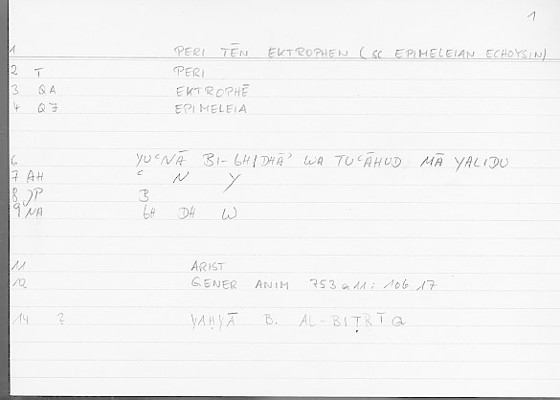 1
1 PERI TĒN EKTROPHEN (SC EPIMELEIAN ECHOYSIN)
2 T PERI
3 QA EKTROPHĒ
4 QZ EPIMELEIA
6 YUʿNĀ BI-GHIDHĀʾ WA TUʿĀHUD MĀ YALIDU
7 AH ʿ N Y
8 JP B
9 NA GH DH W
11 ARIST
12 GENER ANIM 753a11: 106 17
14 ? YAḤYĀ B. AL-BIṬRĪQ